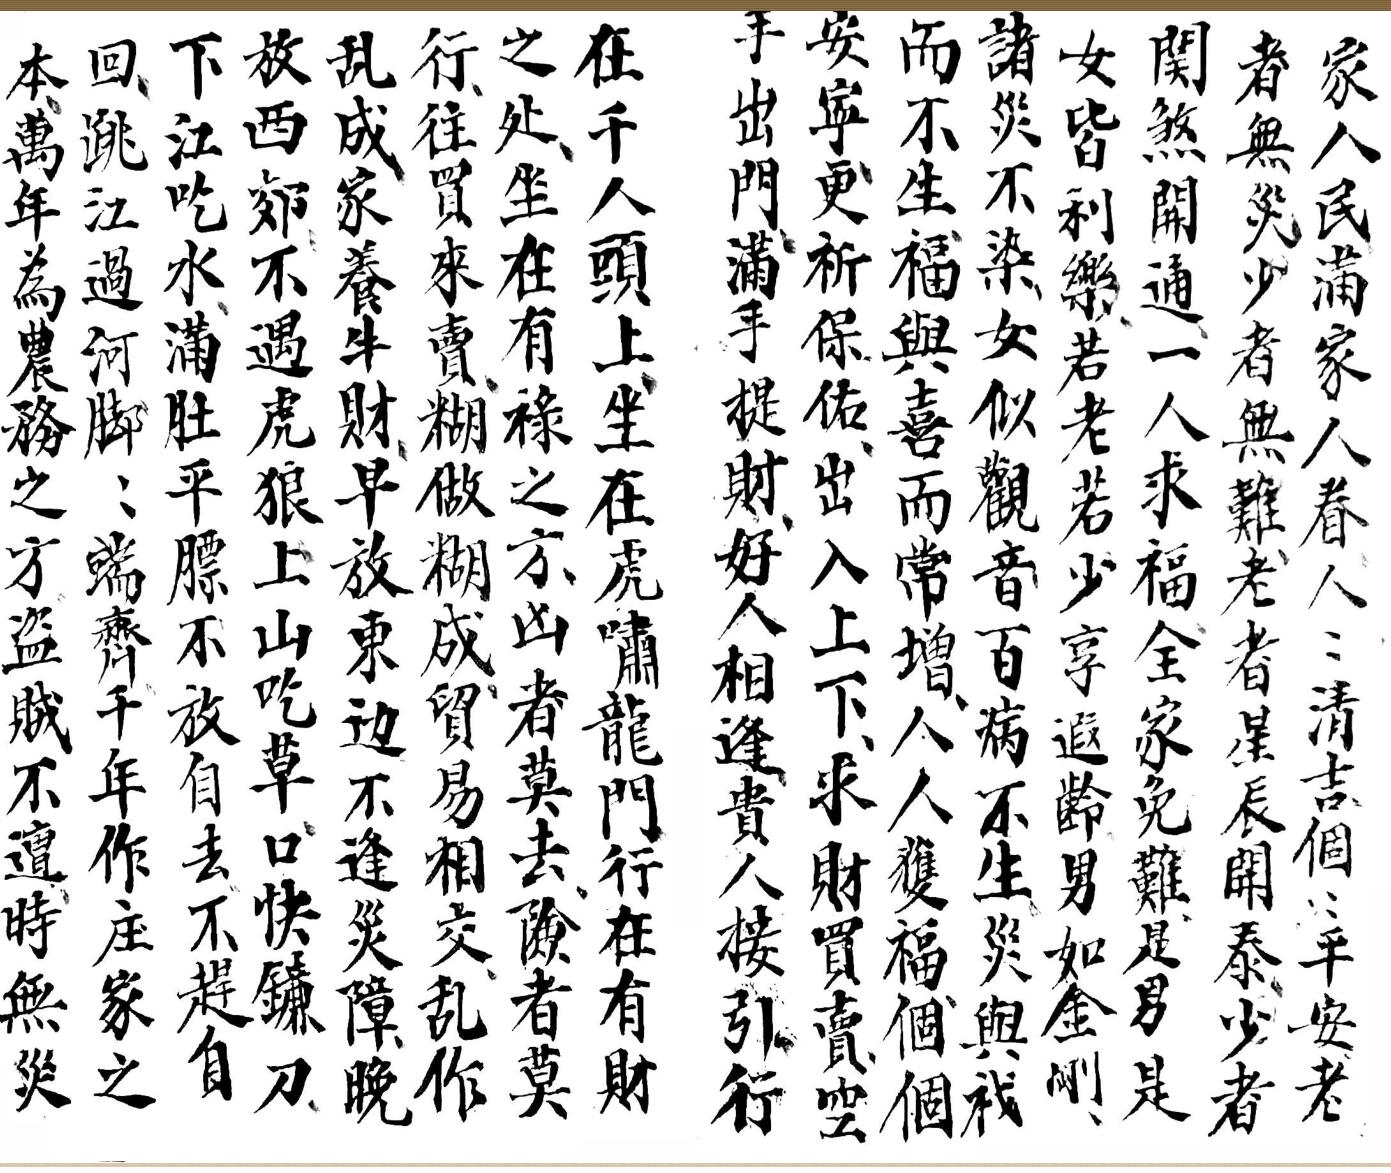 家人民滿家人眷人〻清吉個〻平安老
者無災少者無難老者星辰開泰少者
関煞開通一人求福全家免難是男是
女皆利樂若老若少享遐齡男如金剛、
諸災不染女似觀音百病不生災與戕
而不生福與喜而常增、人人獲福個個
安寧更祈保佑、出入上下、求財買賣、空
手出門、滿手提財、好人相逢貴人接引、行
在千人頭上、坐在虎嘯龍門行在有財
之处、坐在有祿之方、凶者莫去、險者莫
行、往買來賣、糊做糊成、貿易相交、乱作
乱成、家養牛財、早放東边不逢災障、晚
放西郊、不遇虎狼上山吃草口快鐮刀、
下江吃水、滿肚平膘不放自去不趕自
回、跳江過河脚〻端齊千年作庄家之
本、萬年為農務之方盜賊不遭時無災